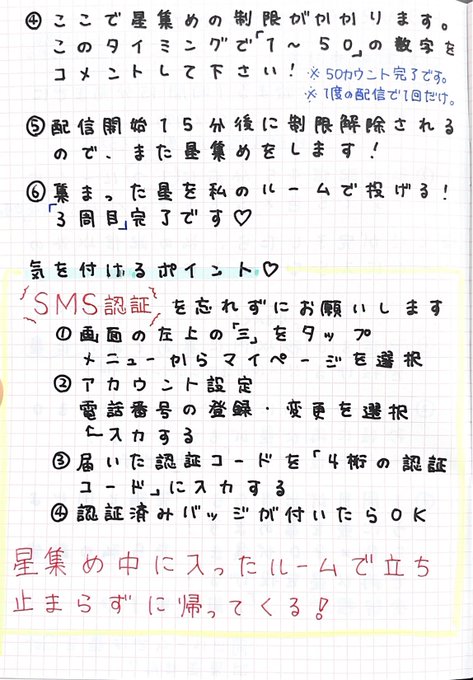 ④ここで星集めの制限がかかります。
このタイミングで「1～50」の数字を
コメントして下さい！※50カウント完了です。
※1度の配信で1回だけ。
⑤配信開始15分後に制限解除される
ので、また星集めをします！
⑥集まった星を私のルームで投げる！
「3周目」完了です♡
気を付けるポイント♡
SMS認証を忘れずにお願いします
①画面の左上の「三」をタップ
メニューからマイページを選択
②アカウント設定
電話番号の登録・変更を選択
←入力する
③届いた認証コードを「4桁の認証
コード」に入力する
④認証済みバッジが付いたらOK
星集め中に入ったルームで立ち
止まらずに帰ってくる！